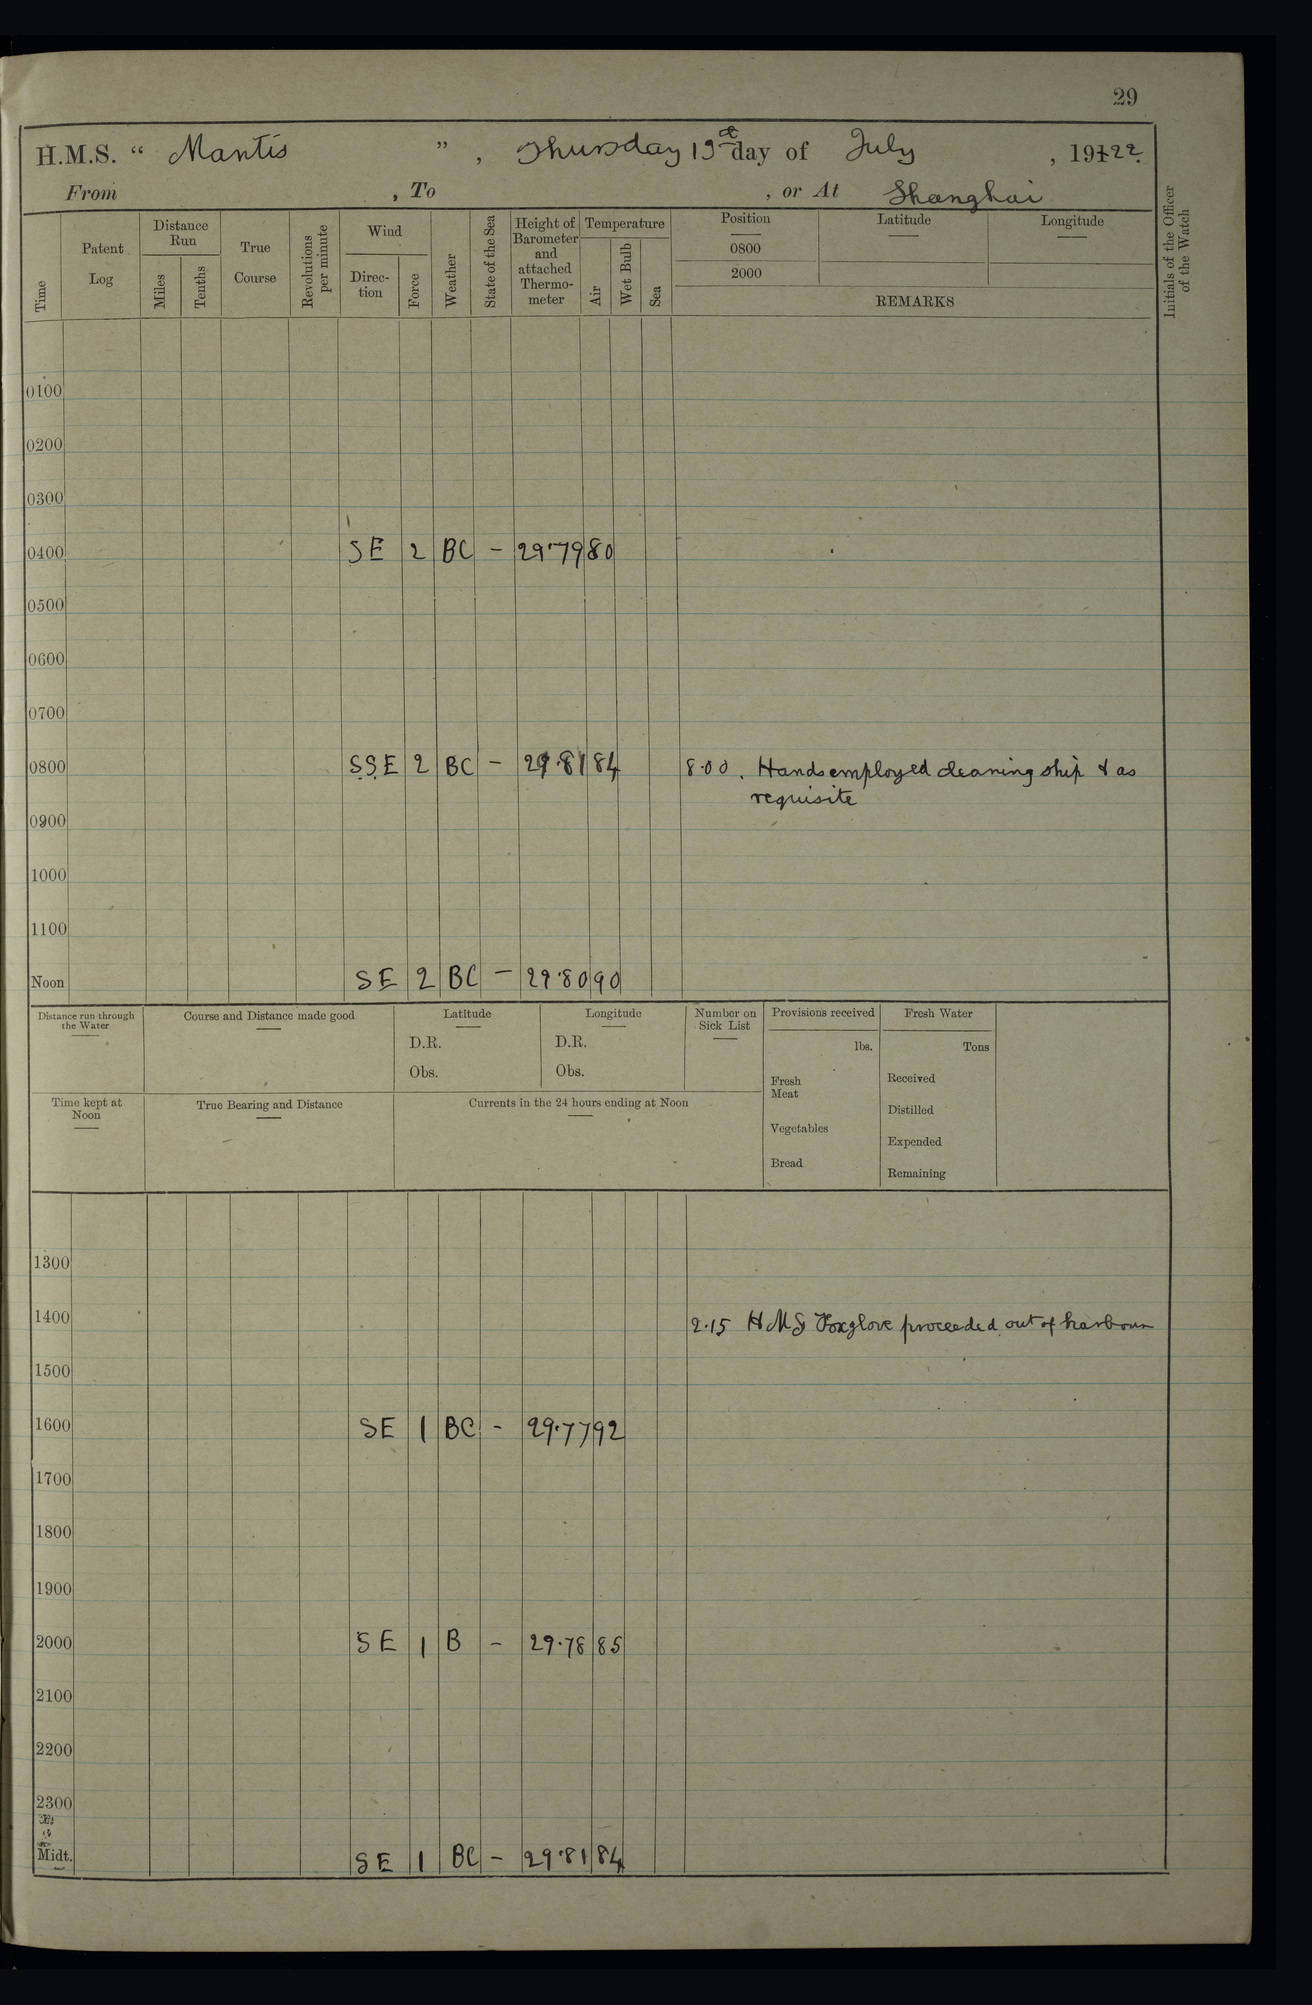 29
H.M.S. “ Mantis ” , Thursday 13th day of July , 1922.
From , To , or At Shanghai
Time Patent Log Distance Run Miles Tenths True Course Revolutions per minute Wind Direc-tion Force Weather State of the Sea Height of Barometer and attached Thermo-meter Temperature Air Wet Bulb Sea Position 0800 2000 Latitude Longitude
REMARKS
Initials of the Officer of the Watch
0100
0200
0300
0400 SE 2 BC - 29.79 80
0500
0600
0700
0800 SSE 2 BC - 29.81 84 8.00. Hands employed cleaning ship & as
requisite
0900
1000
1100
Noon SE 2 BC - 29.80 90
Distance run through the Water Course and Distance made good Latitude Longitude Number on Sick List Provisions received Fresh Water
D.R. D.R. lbs. Tons
Obs. Obs. Fresh Meat Received
Time kept at Noon True Bearing and Distance Currents in the 24 hours ending at Noon
Distilled
Vegetables Expended
Bread Remaining
1300
1400 2.15 HMS Foxglove proceeded out of harbour
1500
1600 SE 1 BC - 29.77 92
1700
1800
1900
2000 SE 1 B - 29.78 85
2100
2200
2300
Midt. SE 1 BC - 29.81 84